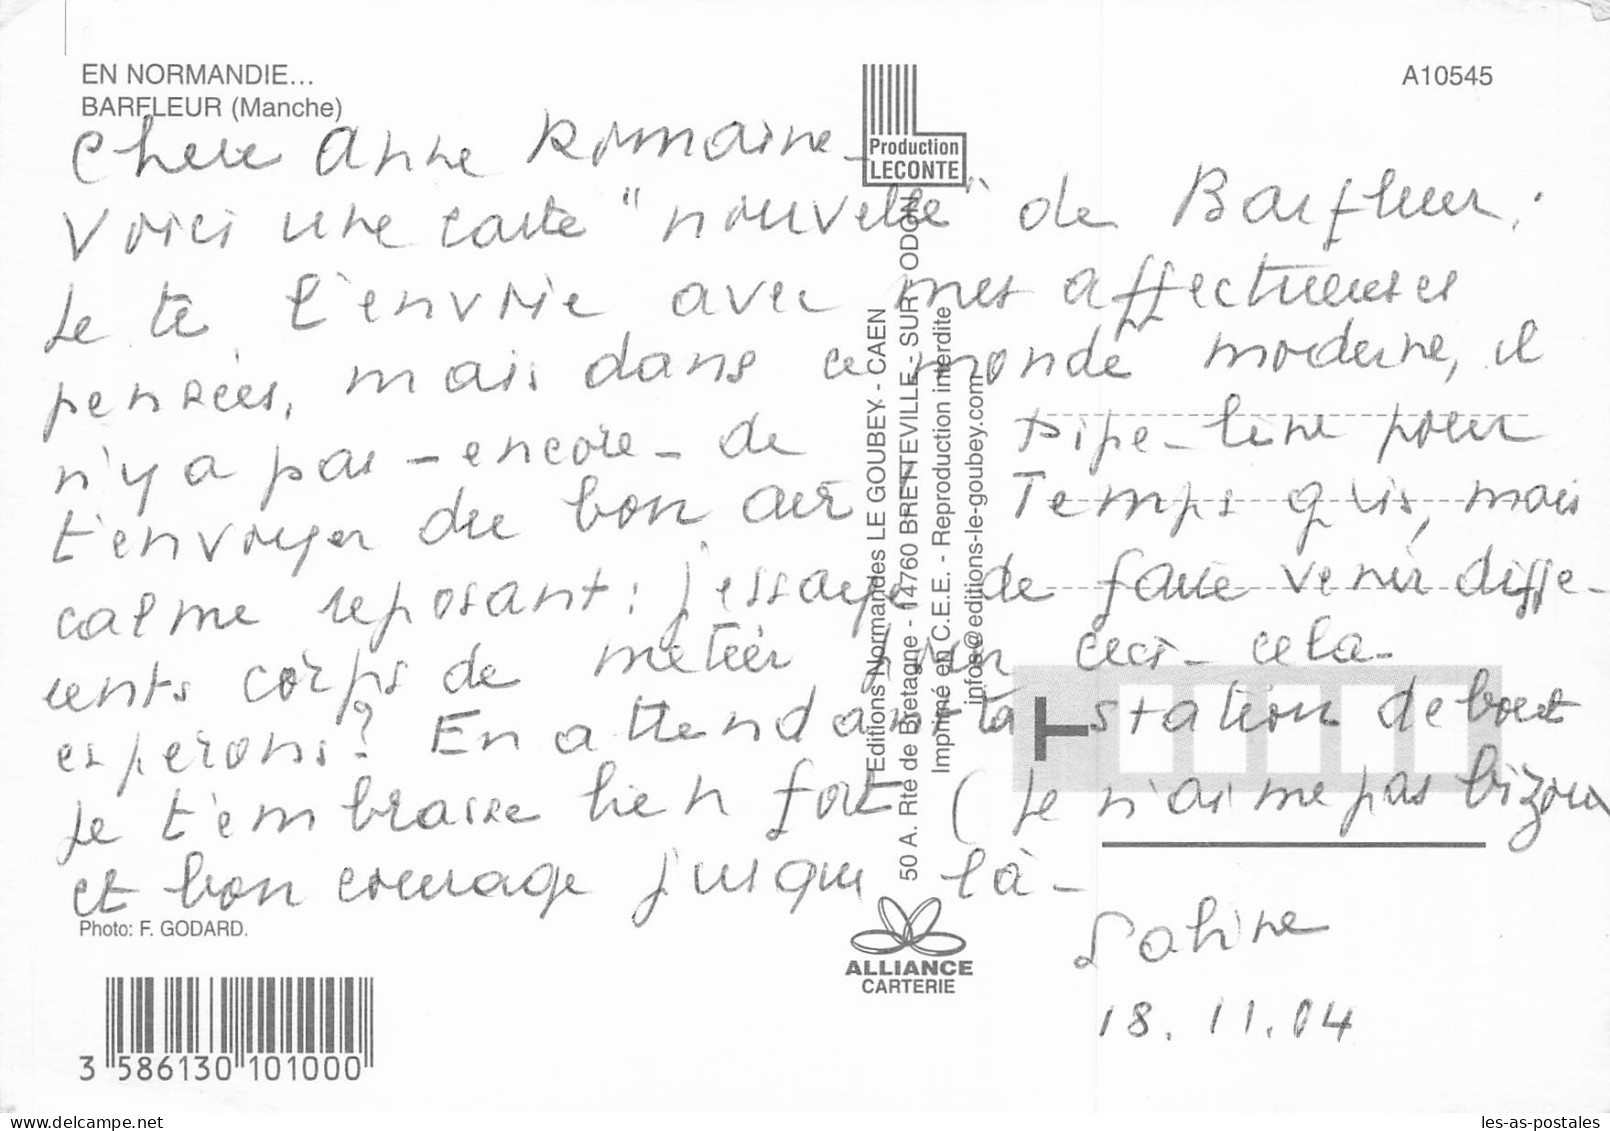 EN NORMANDIE...
BARFLEUR (Manche)
A10545
Production
LECONTE
Chere Anne Romaine_
Voici une carte "nouvelle" de Barfleur.
Je te l'envoie avec mes affectueuses
pensées, mais dans ce monde moderne, il
n'y a pas _ encore _ de pipe-line pour
t'envoyer du bon air Temps gris, mais
calme reposant: j'essaye de faire venir diffe-
rents corps de métier pour ceci- cela-
esperons? En attendant ta station debout
Je t'embrasse bien fort ( Je n'aime pas bizoux
et bon courage jusque là-
Sabine
18.11.04
Editions Normandes LE GOUBEY - CAEN
50 A. Rte de Bretagne - 14760 BRETTEVILLE - SUR - ODON
Imprimé en C.E.E. - Reproduction interdite
infos@editions-le-goubey.com
T
Photo: F. GODARD.
ALLIANCE
CARTERIE
3 586130 101000
delcampe.net
les-as-postales